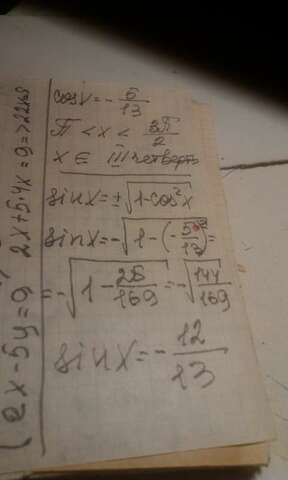 cosx = -5/13
π < x < 3π/2
x ∈ III четверть
sinx = ±√(1-cos²x)
sinx = -√(1-(-5/13)²) =
= -√(1-25/169) = -√(144/169)
sinx = -12/13
2x - 5y = 9